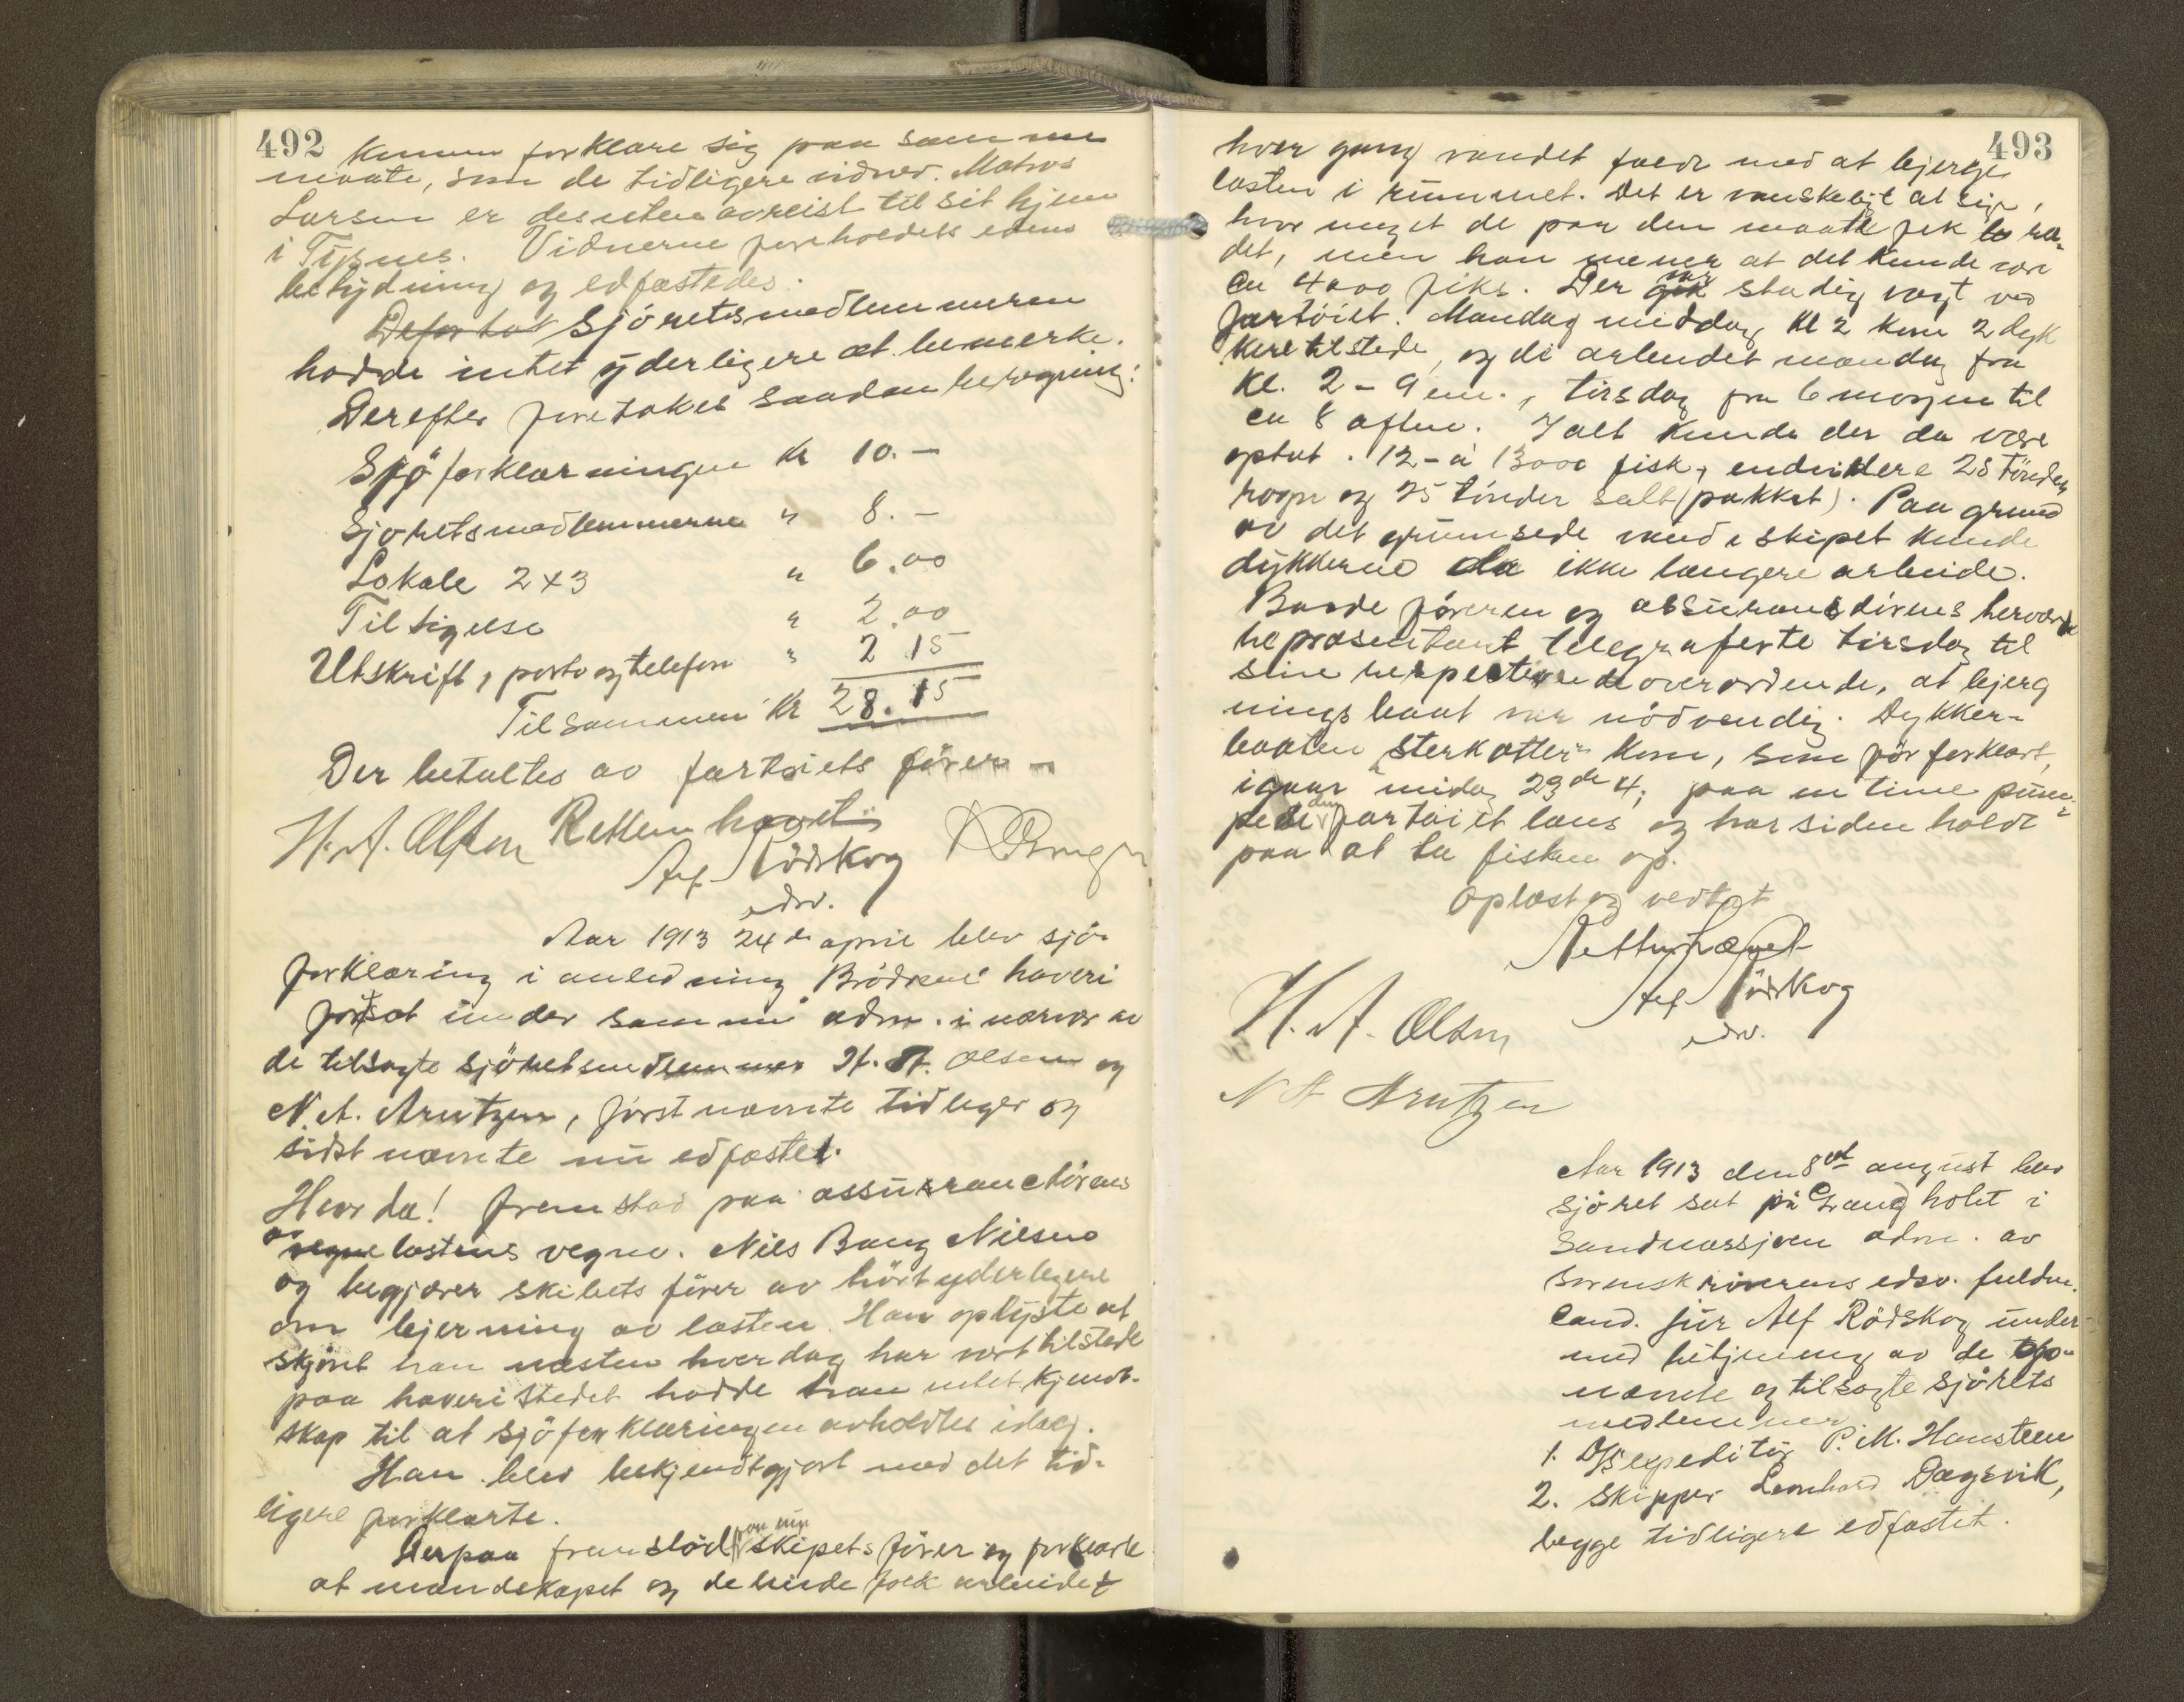 492
kunne forklare sig paa samme
maate, som de tidligere vidner. Matros
Larsen er desuten avreist til sit hjem
i Tysnes. Vidnerne foreholdets edens
betydning og edfæstedes.
Sjøretsmedlemmerne
hadde intet yderligere at bemerke.
Derefter foretokes saadan beregning:
Sjøforklarningen Kr 10.-
Sjøretsmedlemmerne " 8.-
Lokale 2x3 " 6.00
Tilsigelse " 2.00
Utskrift, porto og telefon " 2.15
Tilsammen Kr 28.15
Der betaltes av fartøiets fører
H. A. Olsen Retten hævet
Alf Rödskog
edsv.
Aar 1913 24de april blev sjö-
forklaring i anledning "Brödrene" haveri
fortsat under samme adm. i nærvær av
de tilsagte sjöretsmedlemmer H. A. Olsen og
N. A. Arntzen, förstnævnte tidliger og
sidstnævnte nu edfæstet.
Hvorda! fremstod paa assurancörens
og lastens vegne. Nils Bang Nilsen
og begjærer skibets förer av hört yderligere
om bjerning av lasten. Han oplyste at
skjönt han næsten hver dag har vært tilstede
paa haveristedet hadde han intet kjend-
skap til at sjöforklaringen avholdtes idag.
Han blev bekjendtgjort med det tid-
ligere forklarte.
Derpaa fremstod paa ny skipets förer og forklarte
at mandskapet og de leiede folk arbeidet
493
hver gang vandet faldt med at bjerge
lasten i rummet. Det er vanskelig at sige,
hvor meget de paa den maate fik
det, men han mener at det kunde være
ca 4000 fiks. Der var stadig vagt ved
fartöiet. Mandag middag kl 2 kom 2 dyk
kere tilstede, og de arbeidet mandag fra
kl. 2 - 9 em., tirsdag fra 6 morgen til
ca 8 aften. Ialt kunde der da være
optat. 12- à 13000 fisk, endvidere 28 tönder
rogn og 25 tönder salt (pakket). Paa grund
av det grumsede vand i skipet kunde
dykkerne da ikke længere arbeide.
Baade föreren og assurandörens herværende
repræsentant telegraferte tirsdag til
sine respektive overordende, at bjerg
ningsbaat var nödvendig. Dykker-
baaten "Sterkodder" kom, som för forklart,
igaar midag 23de 4; paa en time pum-
pede den fartöiet læns og har siden holdt
paa at ta fisken op.
Oplæst og vedtat
Retten hævet
Alf Rödskog
edsv.
H. A. Olsen
N A Arntzen
Aar 1913 den 8de august blev
sjöret sat på Grand hotel i
Sandnessjöen adm. av
sorenskriverens edsv. fuldm.
cand. jur Alf Rödskog under
med betjening av de op-
nævnte og tilsagte sjörets
medlemmer
1. Expeditör P. M. Hansteen
2. Skipper Leonhard Dagsvik,
begge tidligere edfæstet.